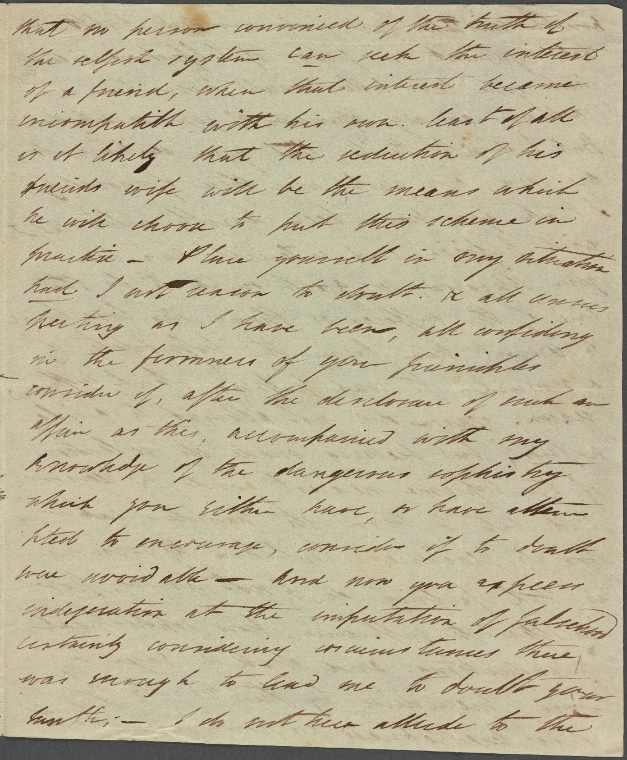 that no person convinced of the truth of
the selfish system can seek the interest
of a friend, when that interest became
incompatible with his own. least of all
is it likely that the seduction of his
friends wife will be the means which
he will choose to put this scheme in
practise – Place yourself in my situation
had I not reason to doubt. & all unsus
pecting as I have been, all confiding
in the firmness of your principles
consider if, after the disclosure of such an
affair as this, accompanied with my
knowledge of the dangerous sophistry
which you either have, or have attem
pted to encourage, consider if to doubt
were avoidable — And now you express
indignation at the imputation of falsehood
certainly considering circumstances there
was enough to lead me to doubt your
truth; – I do not here allude to the